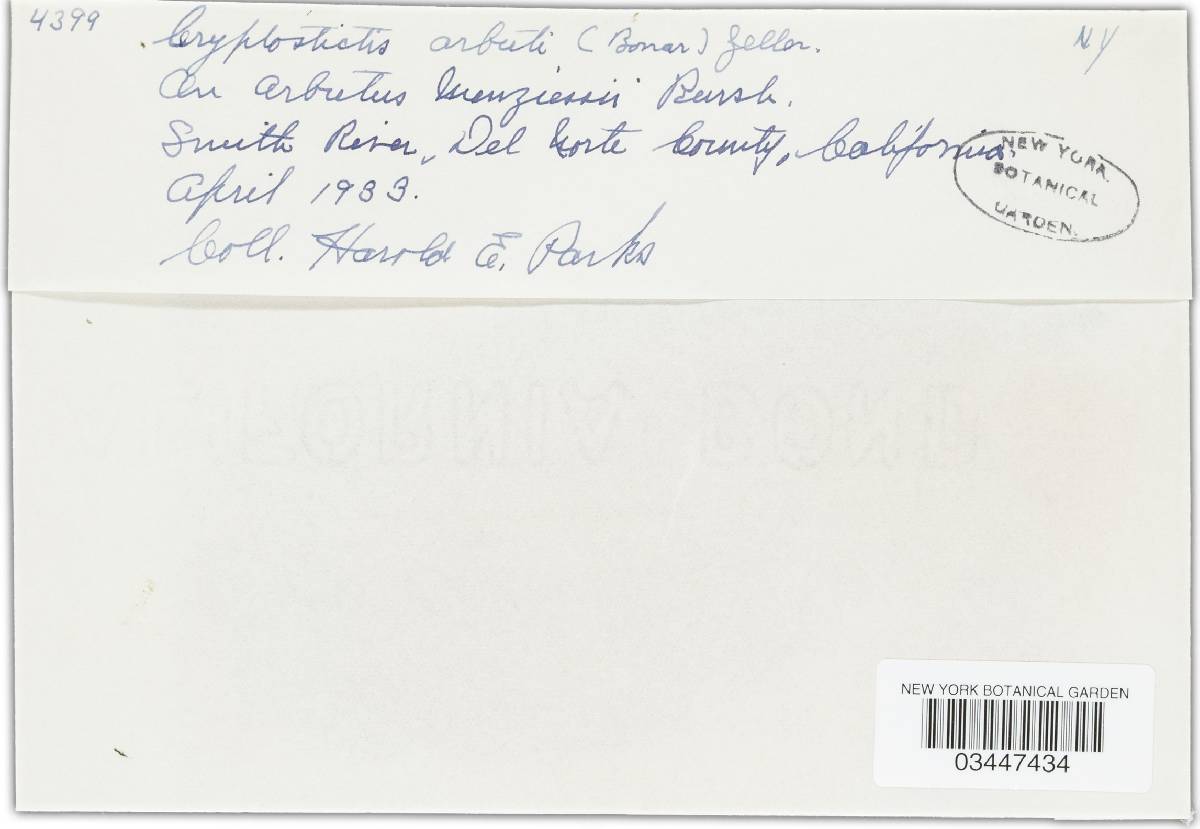 4399
Cryptostictis arbuti (Bonar) Zeller.
NY
On Arbutus Menziesii Pursh.
Smith River, Del Norte County, California,
April 1933.
Coll. Harold E. Parks
NEW YORK
BOTANICAL
GARDEN.
NEW YORK BOTANICAL GARDEN
03447434